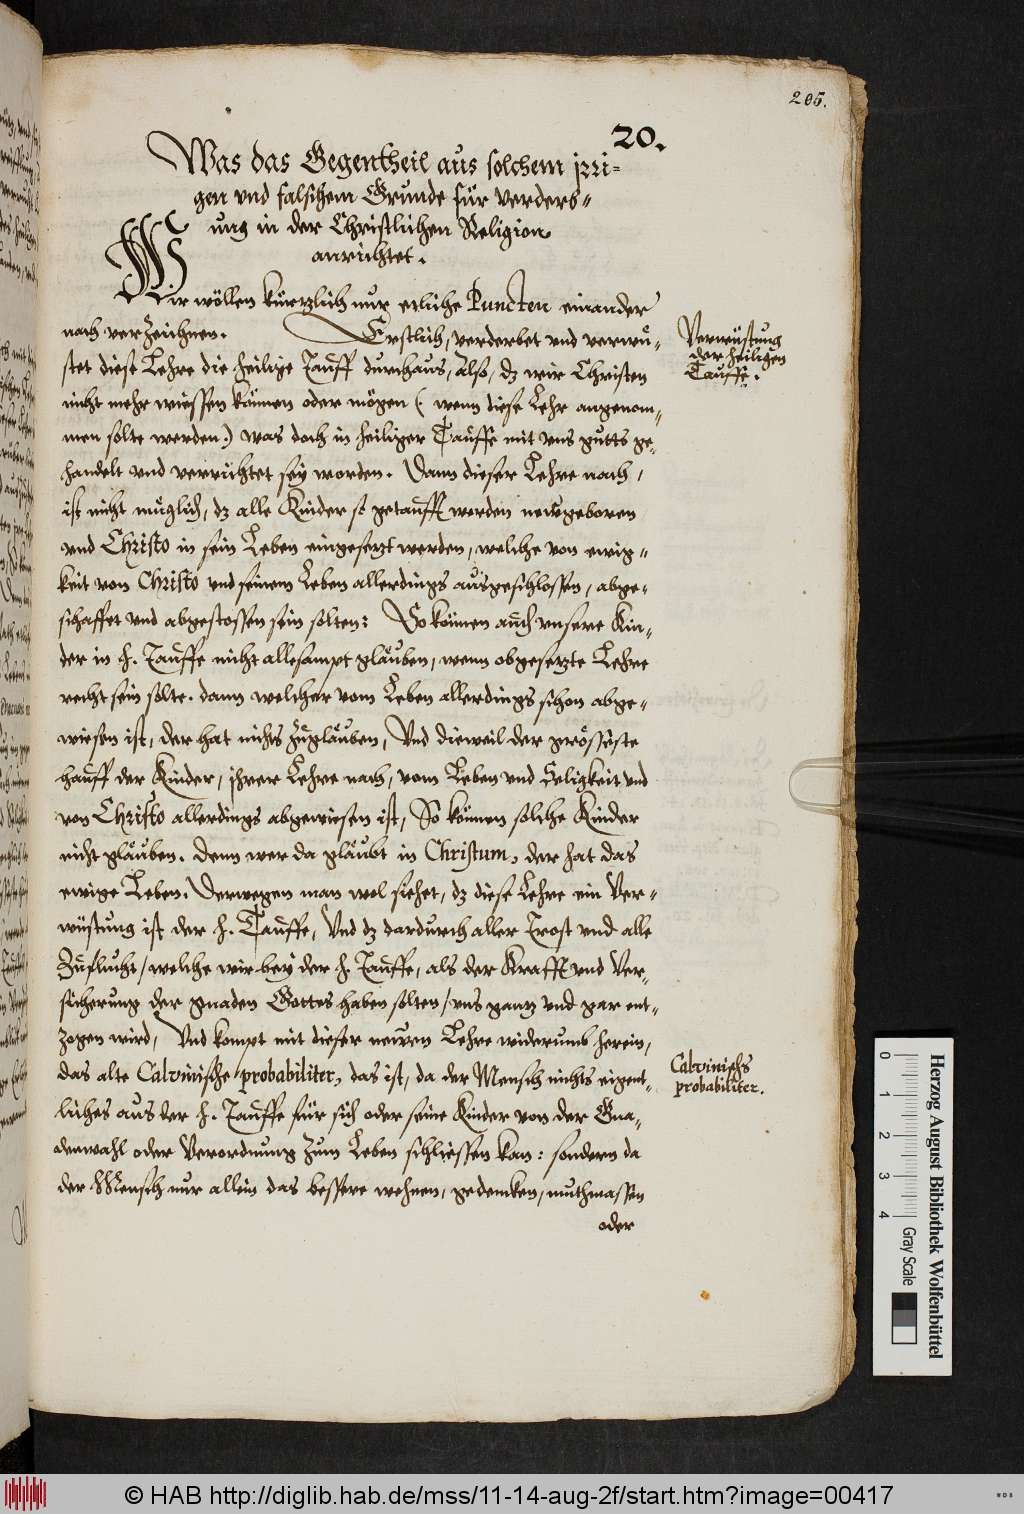 205.
20.
Was das Gegentheil aus solchem jrri-
gen vnd falschem Grunde für verderb-
ung in der Christlichen Religion
anrichtet.
Wir wöllen kürtzlich nur etliche Puncten einander
nach verzeichnen. Erstlich, verderbet vnd verwü-
stet diese Lehre die heilige Tauff durchaus, Also, dz wir Christen
nicht mehr wiessen können oder mögen (wenn diese Lehr angenom-
men solte werden.) was doch in heiliger Tauffe mit vns gutts ge-
handelt vnd verrichtet sey worden. Dann dieser Lehre nach,
ist nicht müglich, dz alle Kinder so getaufft werden newgeboren
vnd Christo in sein Leben eingesetzt werden, welche von ewig-
keit von Christo vnd seinem Leben allerdings ausgeschlossen, abge-
schaffet vnd abgestossen sein solten: So können auch vnsere Kin-
der in h. Tauffe nicht allesampt gläuben, wenn obgesetzte Lehre
recht sein solte. dann welcher vom Leben allerdings schon abge-
wiesen ist, der hat nichts zugläuben, Vnd dieweil der grösseste
hauff der Kinder, jhrer Lehre nach, vom Leben vnd Seligkeit vnd
von Christo allerdings abgewiesen ist, So können solche Kinder
nicht gläuben. Denn wer da gläubt in Christum, der hat das
ewige Leben. Derwegen man wol siehet, dz diese Lehre ein Ver-
wüstung ist der h. Tauffe, Vnd dz dardurch aller Trost vnd alle
Zuflucht, welche wir bey der h. Tauffe, als der Krafft vnd Ver-
sicherung der gnaden Gottes haben solten, vns gantz vnd gar ent-
zogen wird, Vnd kompt mit dieser newen Lehre widerumb herein,
das alte Calvinische probabiliter, das ist, da der Mensch nichts eigent-
liches aus der h. Tauffe für sich oder seine Kinder von der Gna-
denwahl oder Verordnung zum Leben schliessen kan: sondern da
der Mensch nur allein das bessere wehnen, gedencken, muthmassen
oder
Verwüstung
der heiligen
Tauffe.
Calvinischs
probabiliter.
Herzog August Bibliothek Wolfenbüttel
0 1 2 3 4
Gray Scale
© HAB http://diglib.hab.de/mss/11-14-aug-2f/start.htm?image=00417